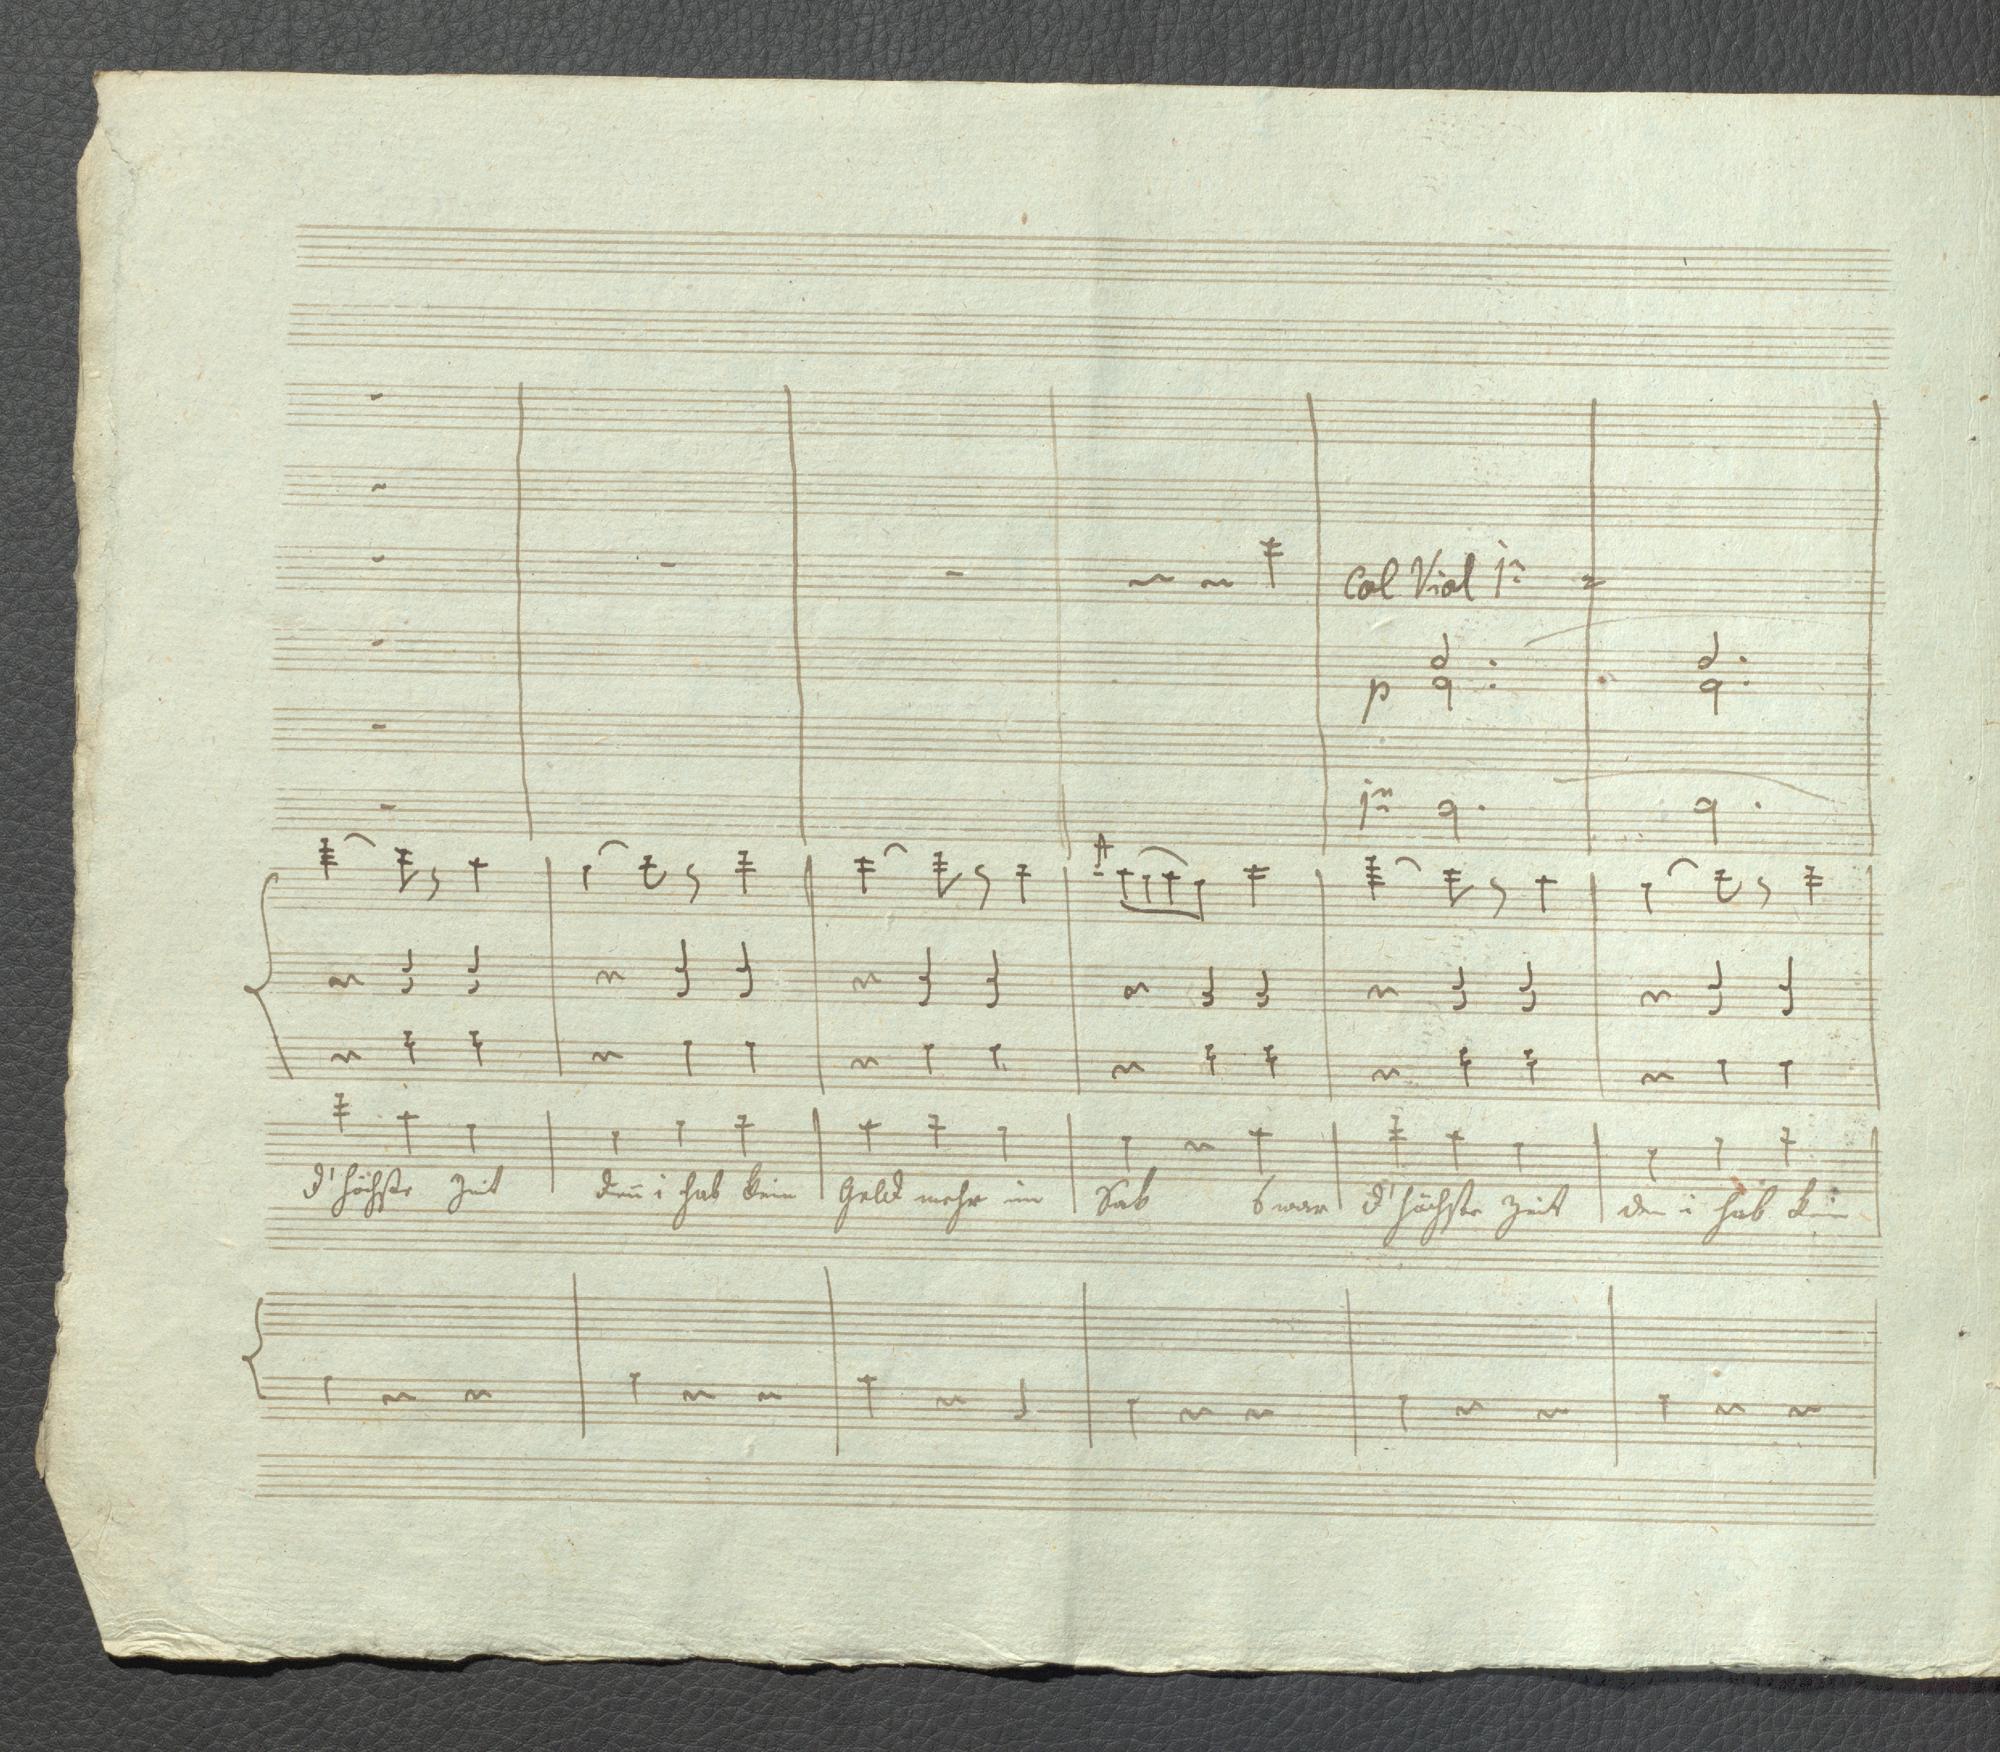 Col Viol 1º =
p
1º
d'höchste Zeit den̄ i hab kein Geld mehr im Sak s war d'höchste Zeit den i hab kein